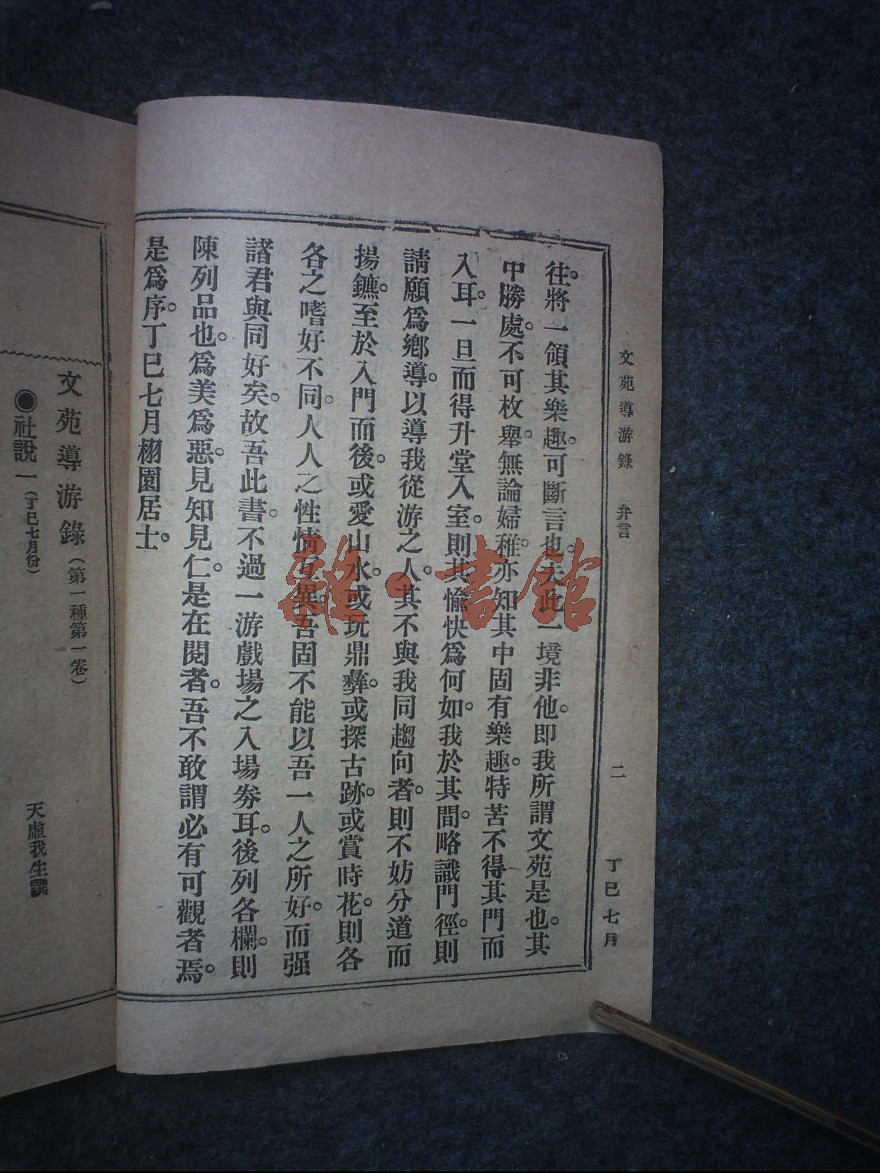 文苑導游錄 弁言 二 丁巳七月
往將一領其樂趣。可斷言也。夫此一境非他。即我所謂文苑是也。其
中勝處。不可枚舉。無論婦稚。亦知其中固有樂趣。特苦不得其門而
入耳。一旦而得升堂入室。則其愉快為何如。我於其間。略識門徑。則
請願為鄉導。以導我從游之人。其不與我同趨向者。則不妨分道而
揚鑣。至於入門而後。或愛山水。或玩鼎彝。或探古跡。或賞時花。則各
各之嗜好不同。人人之性情互異。吾固不能以吾一人之所好。而强
諸君與同好矣。故吾此書。不過一游戲場之入場劵耳。後列各欄。則
陳列品也。為美為惡。見知見仁。是在閱者。吾不敢謂必有可觀者焉。
是為序。丁巳七月栩園居士。
文苑導游錄（第一種第一卷）
◉社說一（丁巳七月份）
天虛我生譔
雜·書館